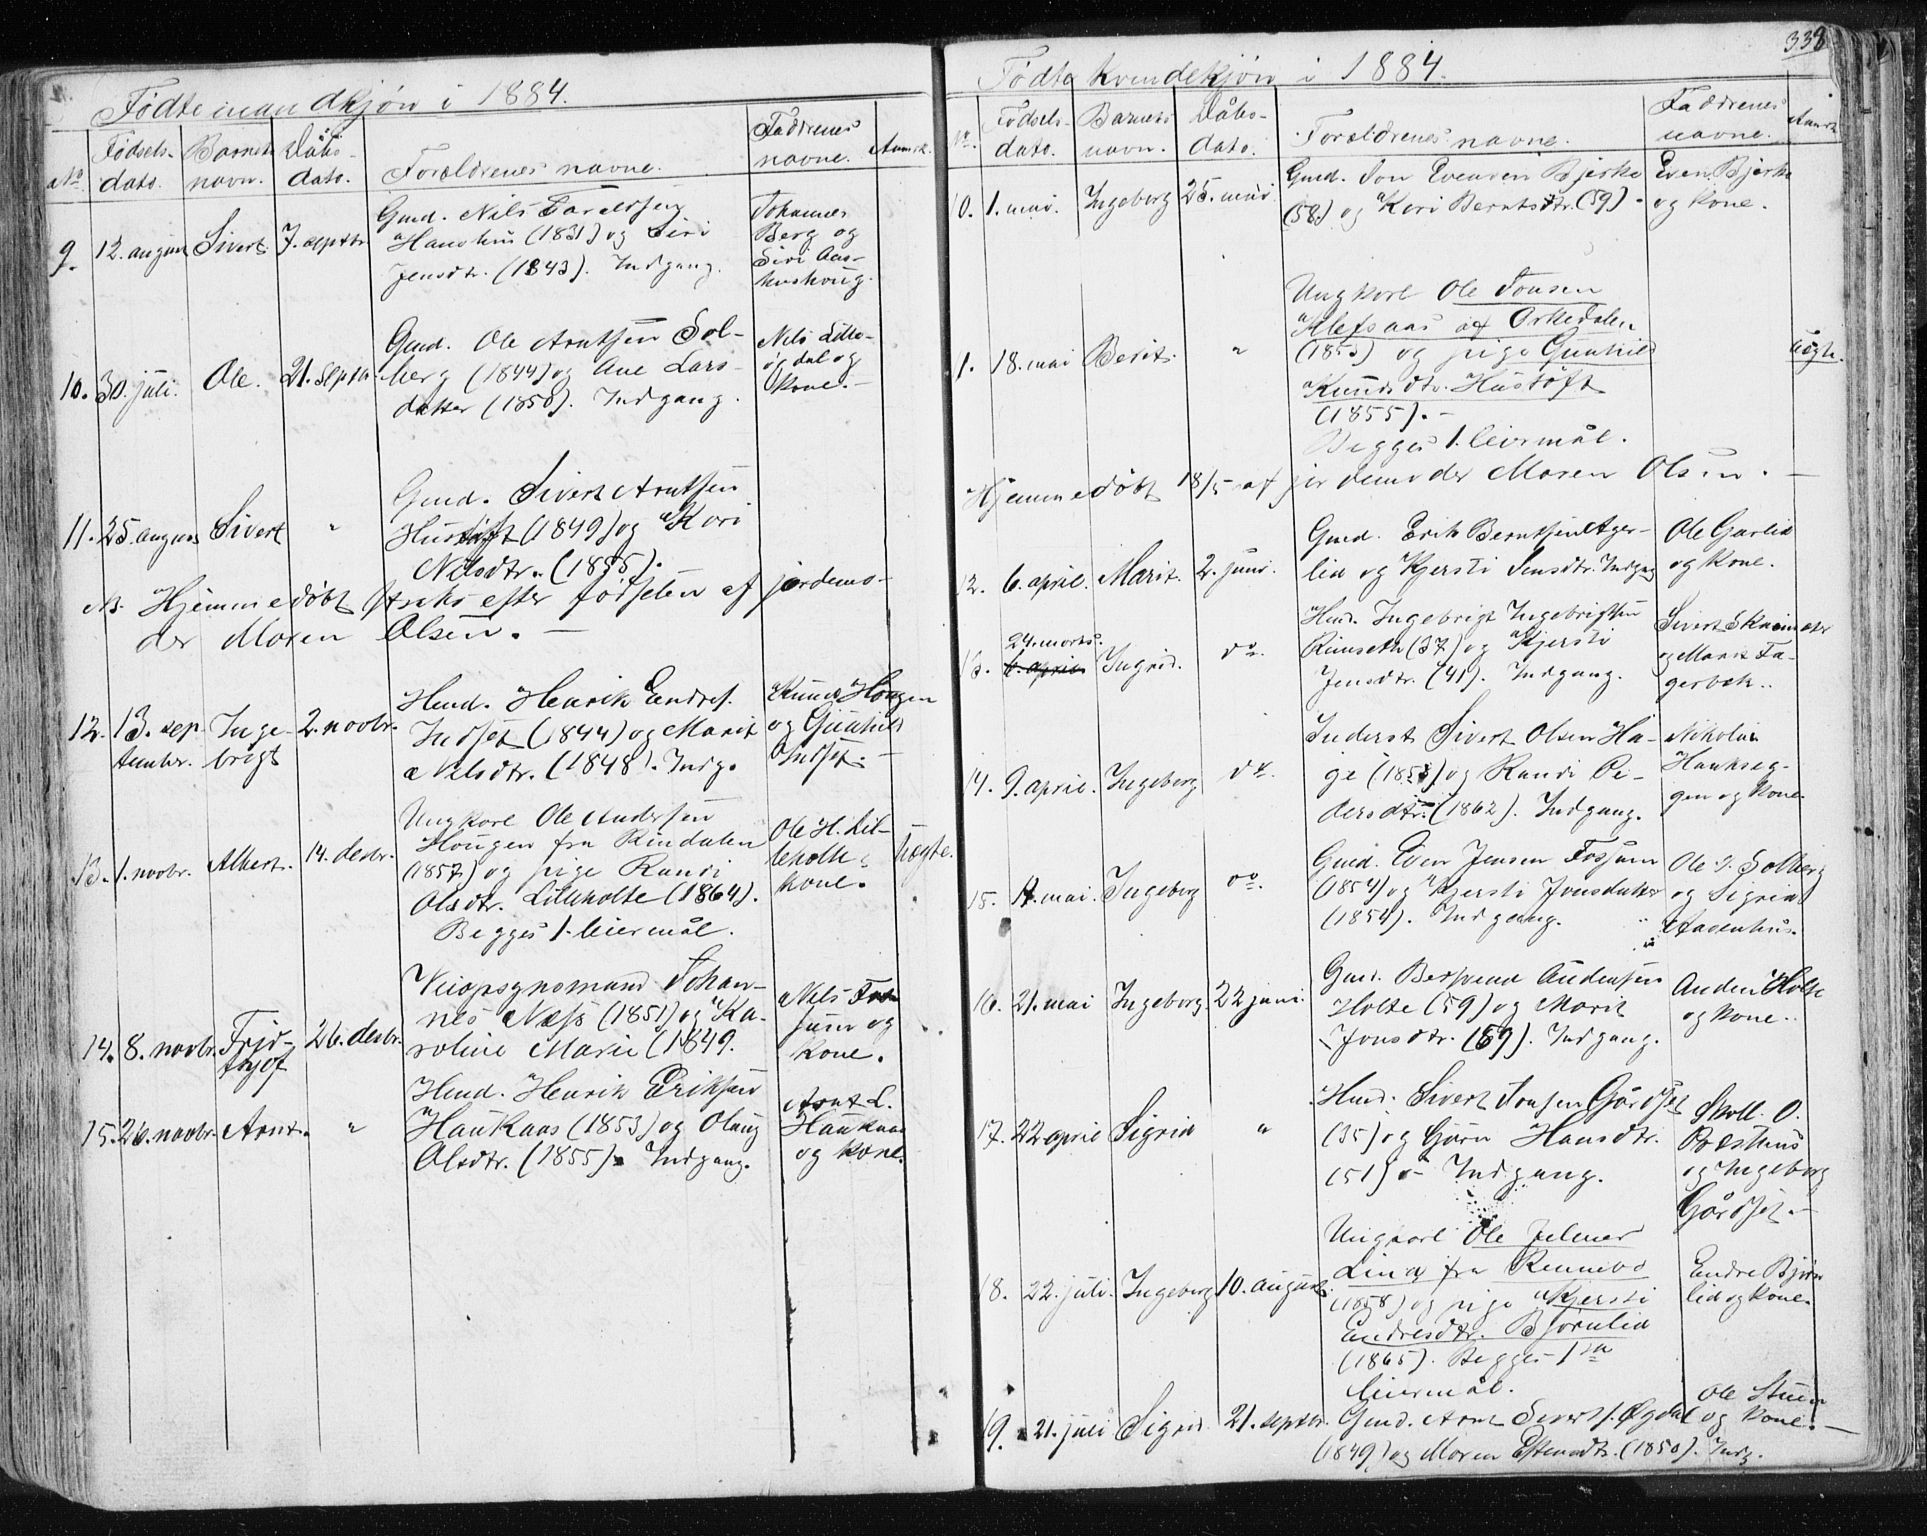 Fødte mandkjøn i 1884.
No. Fødsels-dato. Barnets navn. Dåbs-dato. Forældrenes navne. Faddrenes navne. Anmrk.
9. 12. august Sivert 7. septbr.
Gmd. Nils
Hanshus (1831) og Siri
Jensdtr. (1843). Indgang.
Johannes
Berg og
Siri Aas-
hushoug.
10. 30. juli. Ole. 21. septbr.
Gmd. Ole Arntsen Sol-
berg (1844) og Ane Lars-
datter (1850). Indgang.
Nils Lille-
øgdal og
kone.
11. 25. august Sivert "
Gmd. Sivert Arntsen
Hustøft (1849) og Kari
Nilsdtr. (1855).
NB. Hjemmedøbt straks efter fødselen af jordemo-
der Maren Olsen. —
12. 13. sep-
tember. Inge-
brigt 2. novbr.
Hmd. Henrik Endres.
Indset (1844) og Marit
Nilsdtr. (1848). Indg.
Knud Hougen
og Gunhild
Indset. —
13. 1. novbr. Albert. 14. desbr.
Ungkarl Ole Andersen
Hougen fra Rindalen
(1857) og pige Randi
Olsdtr. Lilleholte (1864).
Begges 1. leiermål.
Ole H. Lil-
leholte
kone.
Uægte.
14. 8. novbr. Frid-
thjof 26. desbr.
Veiopsynsmand Johan-
nes Næss (1851) og Ka-
roline Marie (1849.
Nils Fos-
sum og
kone.
15. 26. novbr. Arnt. "
Hmd. Henrik Eriksen
Haukaas (1853) og Olaug
Olsdtr. (1855). Indgang.
Arnt L.
Haukaas
og kone.
338
Fødte kvindekjøn i 1884.
No. Fødsels-dato. Barnets navn. Dåbs-dato. Forældrenes navne. Faddrenes navne. Anmrk.
10. 1. mai. Ingeborg 25. mai.
Gmd. Jon Evensen Bjerke
(58.) og Kari Berntsdtr. (59).
Even Bjerke
og kone.
1. 18. mai Berit. "
Ungkarl Ole Jonsen
Klefsaas af Orkedalen
(1853) og pige Gunhild
Knudsdtr. Hustøft
(1855). —
Begges 1. leiermål.
uægte.
Hjemmedøbt 18/5 af jordemoder Maren Olsen. —
12. 6. april. Marit. 2. juni.
Gmd. Erik Berntsen Ager-
lid og Kjersti Jensdtr. Indgang
Ole Garlid
og kone.
13. 24. marts. 6. april Ingrid. do.
Hmd. Ingebrigt Ingebrigtsen
Rimseth (37) og Kjersti
Jensdtr. (41). Indgang.
Sivert
og Marit Fa-
gerbek..
14. 9. april. Ingeborg do.
Inderst Sivert Olsen Ha-
ge (1858) og Randi Pe-
dersdtr. (1862). Indgang.
Nikolai
Haukseg-
gen og kone.
15. 11. mai. Ingeborg do.
Gmd. Even Jensen Fossum
(1854) og Kjersti Jonsdatter
(1854). Indgang.
Ole J. Solberg
og Sigrid
Aasenhus.
16. 21. mai Ingeborg. 22 juni.
Gmd. Bersvend Andersen
Holte (59) og Marit
Jonsdtr. (59). Indgang.
Anders Holte
og kone..
17. 22 april Sigrid "
Hmd. Sivert Jonsen Gårdset
(35) og Gjørn Hansdtr.
(51) – Indgang.
Skoll. O.
Præsthus
og Ingeborg
Gårdset. —
18. 22. juli. Ingeborg 10. august.
Ungkarl Ole Julines
Lien fra Rennebo
(1858) og pige Kjersti
Endresdtr. Bjørnlid
(1865). Begges 1ste
leiermål.
Endre Bjørn-
lid og kone.
19. 21. juli Sigrid. 21. septbr.
Gmd. Arnt Siverts. Øgdal
(1849) og Maren Estensdtr. (1850). Indg.
Ole Stuen
og kone. —